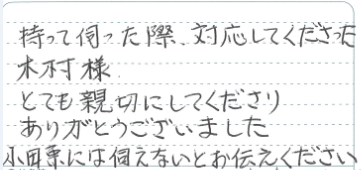 持って伺った際、対応してくださった
木村様
とても親切にしてくださり
ありがとうございました
小田原には伺えないとお伝えください